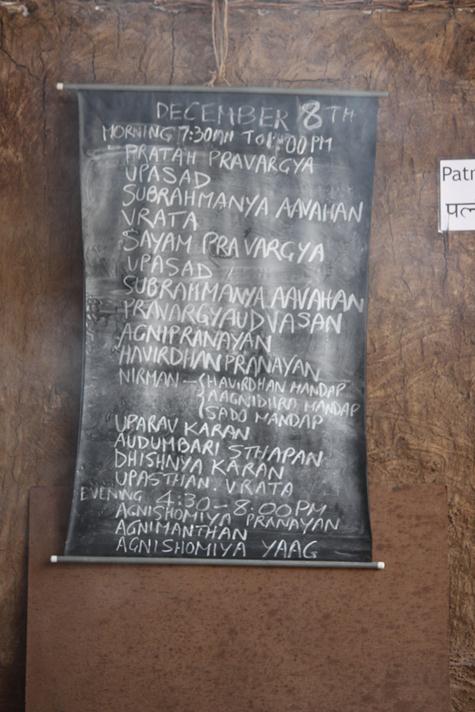 DECEMBER 8TH
MORNING 7:30AM TO 1:00PM
PRATAH PRAVARGYA
UPASAD
SUBRAHMANYA AAVAHAN
VRATA
SAYAM PRAVARGYA
UPASAD
SUBRAHMANYA AAVAHAN
PRAVARGYAUDVASAN
AGNIPRANAYAN
HAVIRDHAN PRANAYAN
NIRMAN - HAVIRDHAN MANDAP
AAGNIDHRA MANDAP
SADO MANDAP
UPARAV KARAN
AUDUMBARI STHAPAN
DHISHNYA KARAN
UPASTHAN. VRATA
EVENING 4:30-8:00PM
AGNISHOMIYA PRANAYAN
AGNIMANTHAN
AGNISHOMIYA YAAG
Patn